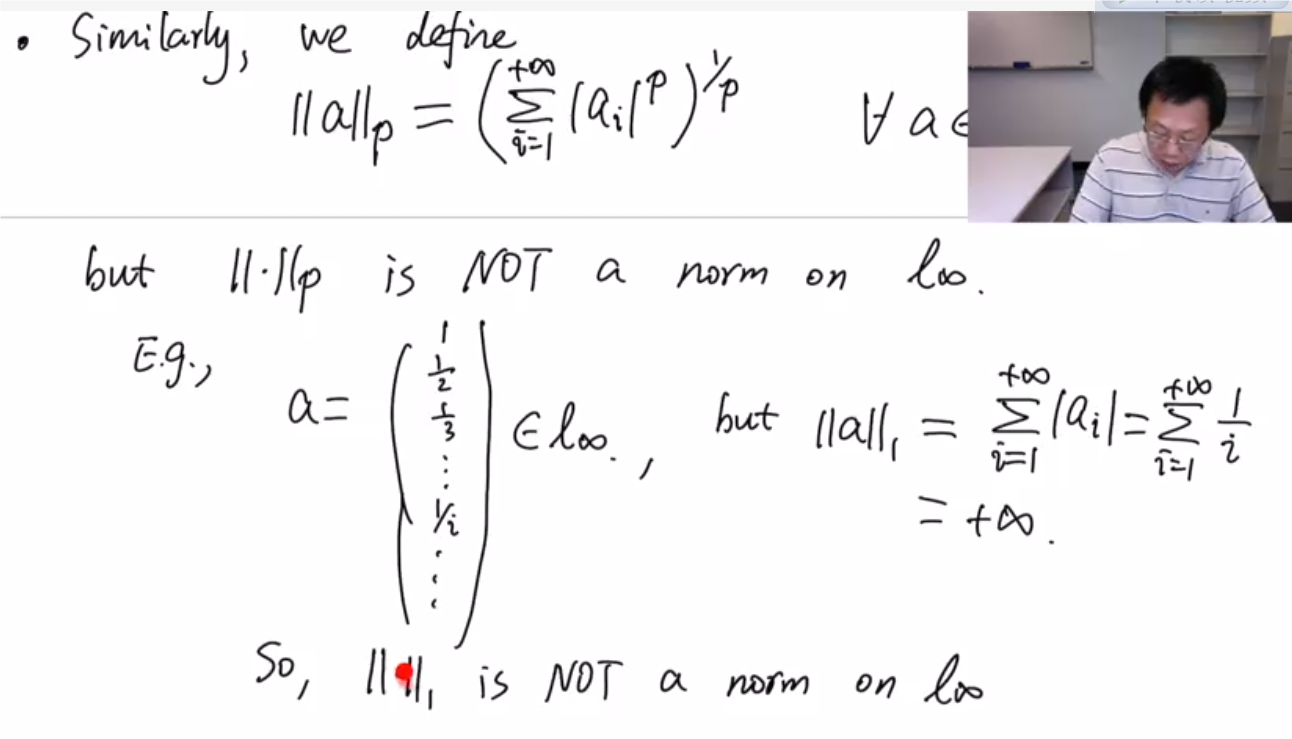 • Similarly, we define
||a||p = (∑_{i=1}^{+∞} |ai|^p)^{1/p} ∀ a ∈
but ||·||p is NOT a norm on l∞.
E.g.,
a = (1 1/2 1/3 ⋮ 1/i ⋮) ∈ l∞., but ||a||1 = ∑_{i=1}^{+∞} |ai| = ∑_{i=1}^{+∞} 1/i
= +∞.
So, ||·||1 is NOT a norm on l∞